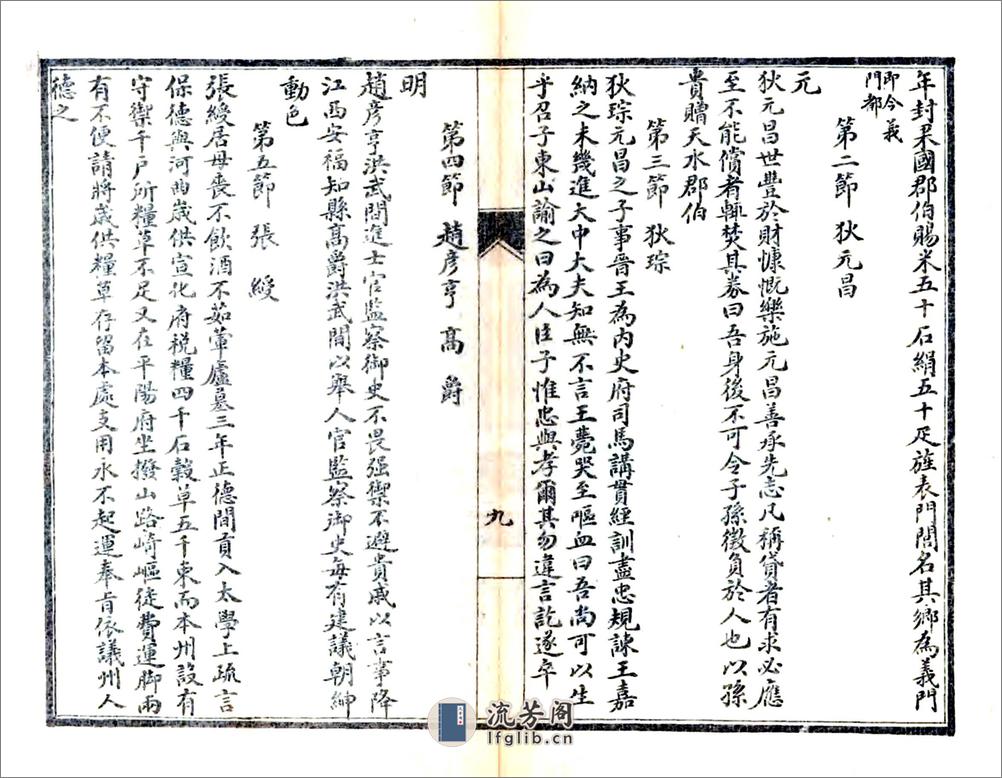 年封杲國郡伯賜米五十石絹五十疋旌表門閭名其鄉為義門
即今義
門都
第二節 狄元昌
元
狄元昌世豐於財慷慨樂施元昌善承先志凡稱貸者有求必應
至不能償者輒焚其券曰吾身後不可令子孫徵負於人也以孫
貴贈天水郡伯
第三節 狄琮
狄琮元昌之子事晉王為內史府司馬講貫經訓盡忠規諫王嘉
納之未幾進大中大夫知無不言王薨哭至嘔血曰吾尚可以生
乎召子東山諭之曰為人臣子惟忠與孝爾其勿違言訖遂卒
九
第四節 趙彥亨 高 爵
明
趙彥亨洪武間進士官監察御史不畏强禦不避貴戚以言事降
江西安福知縣高爵洪武間以舉人官監察御史每有建議朝紳
動色
第五節 張 綬
張綬居母喪不飲酒不茹葷廬墓三年正德間貢入太學上疏言
保德與河曲歲供宣化府稅糧四千石穀草五千束而本州設有
守禦千戶所糧草不足又在平陽府坐撥山路崎嶇徒費運脚兩
有不便請將歲供糧草存留本處支用永不起運奉旨依議州人
德之
流芳阁
lfglib.cn